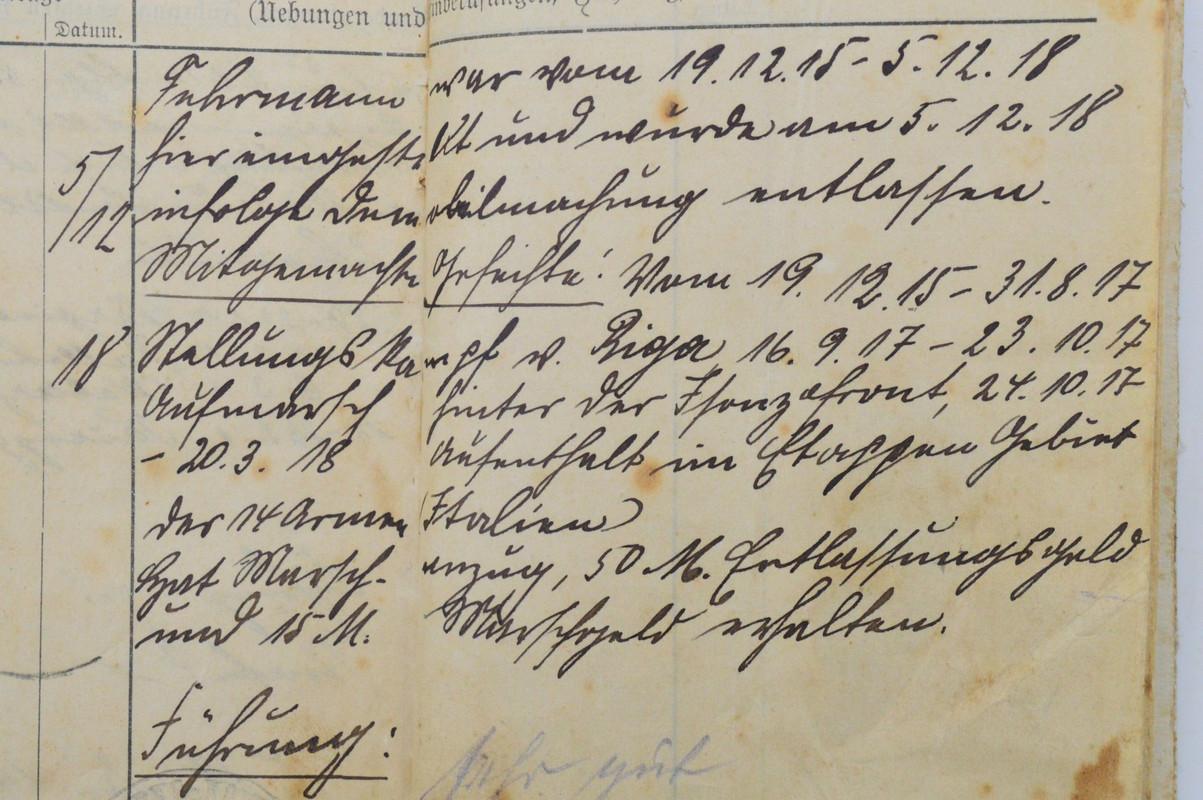 Datum.
(Uebungen und Einberufungen,
Fuhrmann war vom 19.12.15 – 5.12.18
5/12 hier eingestellt und wurde am 5.12.18
infolge Demobilmachung entlassen.
Mitgemachte Gefechte: Vom 19.12.15 – 31.8.17
18 Stellungskampf v. Riga 16.9.17 – 23.10.17
Aufmarsch hinter der Isonzofront, 24.10.17
– 20.3.18 Aufenthalt im Etappen Gebiet
der 14 Armee Italien
Hat Marschanzug, 50 M. Entlassungsgeld
und 15 M. Marschgeld erhalten.
Führung: sehr gut